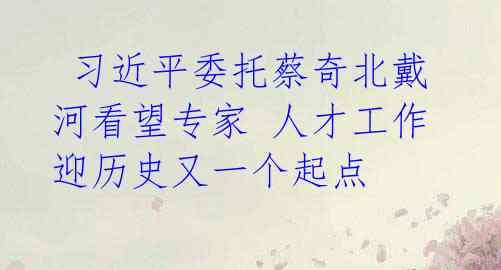 习近平委托蔡奇北戴
河看望专家 人才工作
迎历史又一个起点